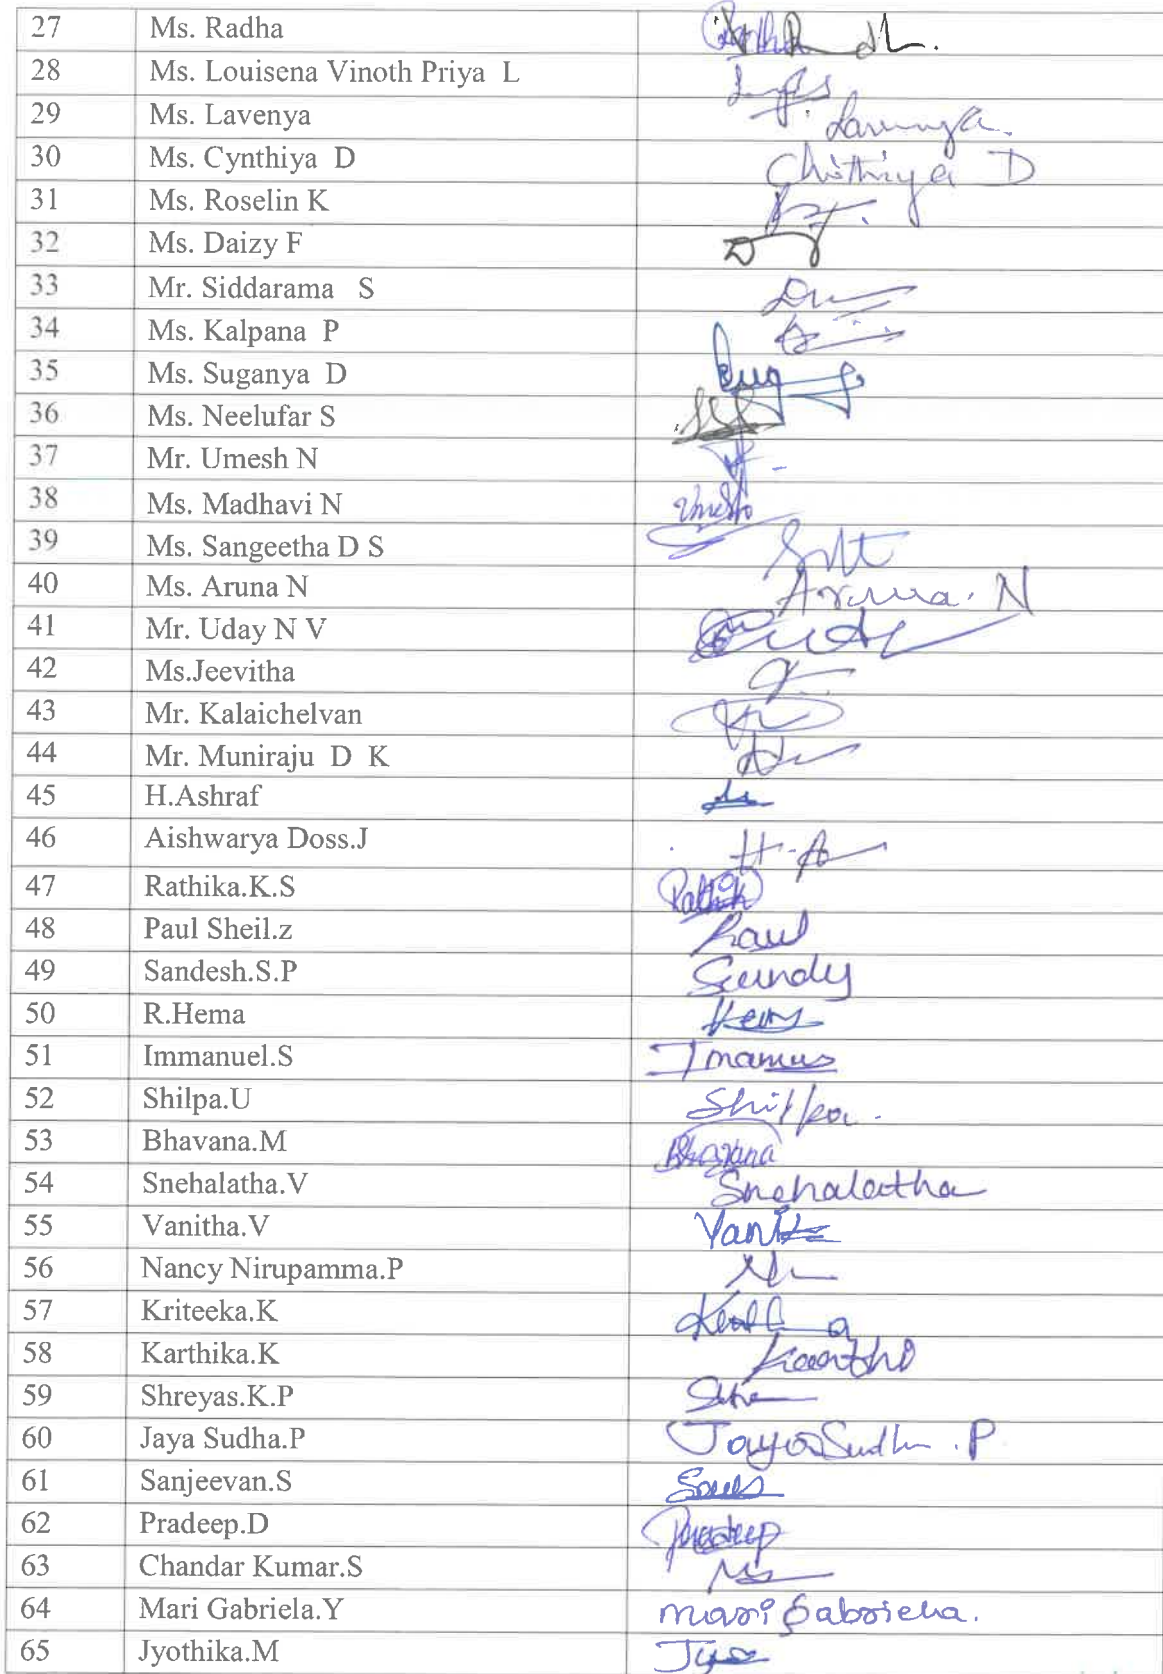 27 Ms. Radha
28 Ms. Louisena Vinoth Priya L
29 Ms. Lavenya
30 Ms. Cynthiya D Chisthiya D
31 Ms. Roselin K
32 Ms. Daizy F
33 Mr. Siddarama S
34 Ms. Kalpana P
35 Ms. Suganya D
36 Ms. Neelufar S
37 Mr. Umesh N
38 Ms. Madhavi N Umesh
39 Ms. Sangeetha D S
40 Ms. Aruna N Aruna. N
41 Mr. Uday N V
42 Ms.Jeevitha
43 Mr. Kalaichelvan
44 Mr. Muniraju D K
45 H.Ashraf
46 Aishwarya Doss.J H.A
47 Rathika.K.S
48 Paul Sheil.z Paul
49 Sandesh.S.P Sandy
50 R.Hema
51 Immanuel.S
52 Shilpa.U Shilpa.
53 Bhavana.M Bhavana
54 Snehalatha.V Snehalatha
55 Vanitha.V
56 Nancy Nirupamma.P
57 Kriteeka.K
58 Karthika.K
59 Shreyas.K.P
60 Jaya Sudha.P Jaya Sudha .P
61 Sanjeevan.S
62 Pradeep.D Pradeep
63 Chandar Kumar.S
64 Mari Gabriela.Y mari Gabriela.
65 Jyothika.M